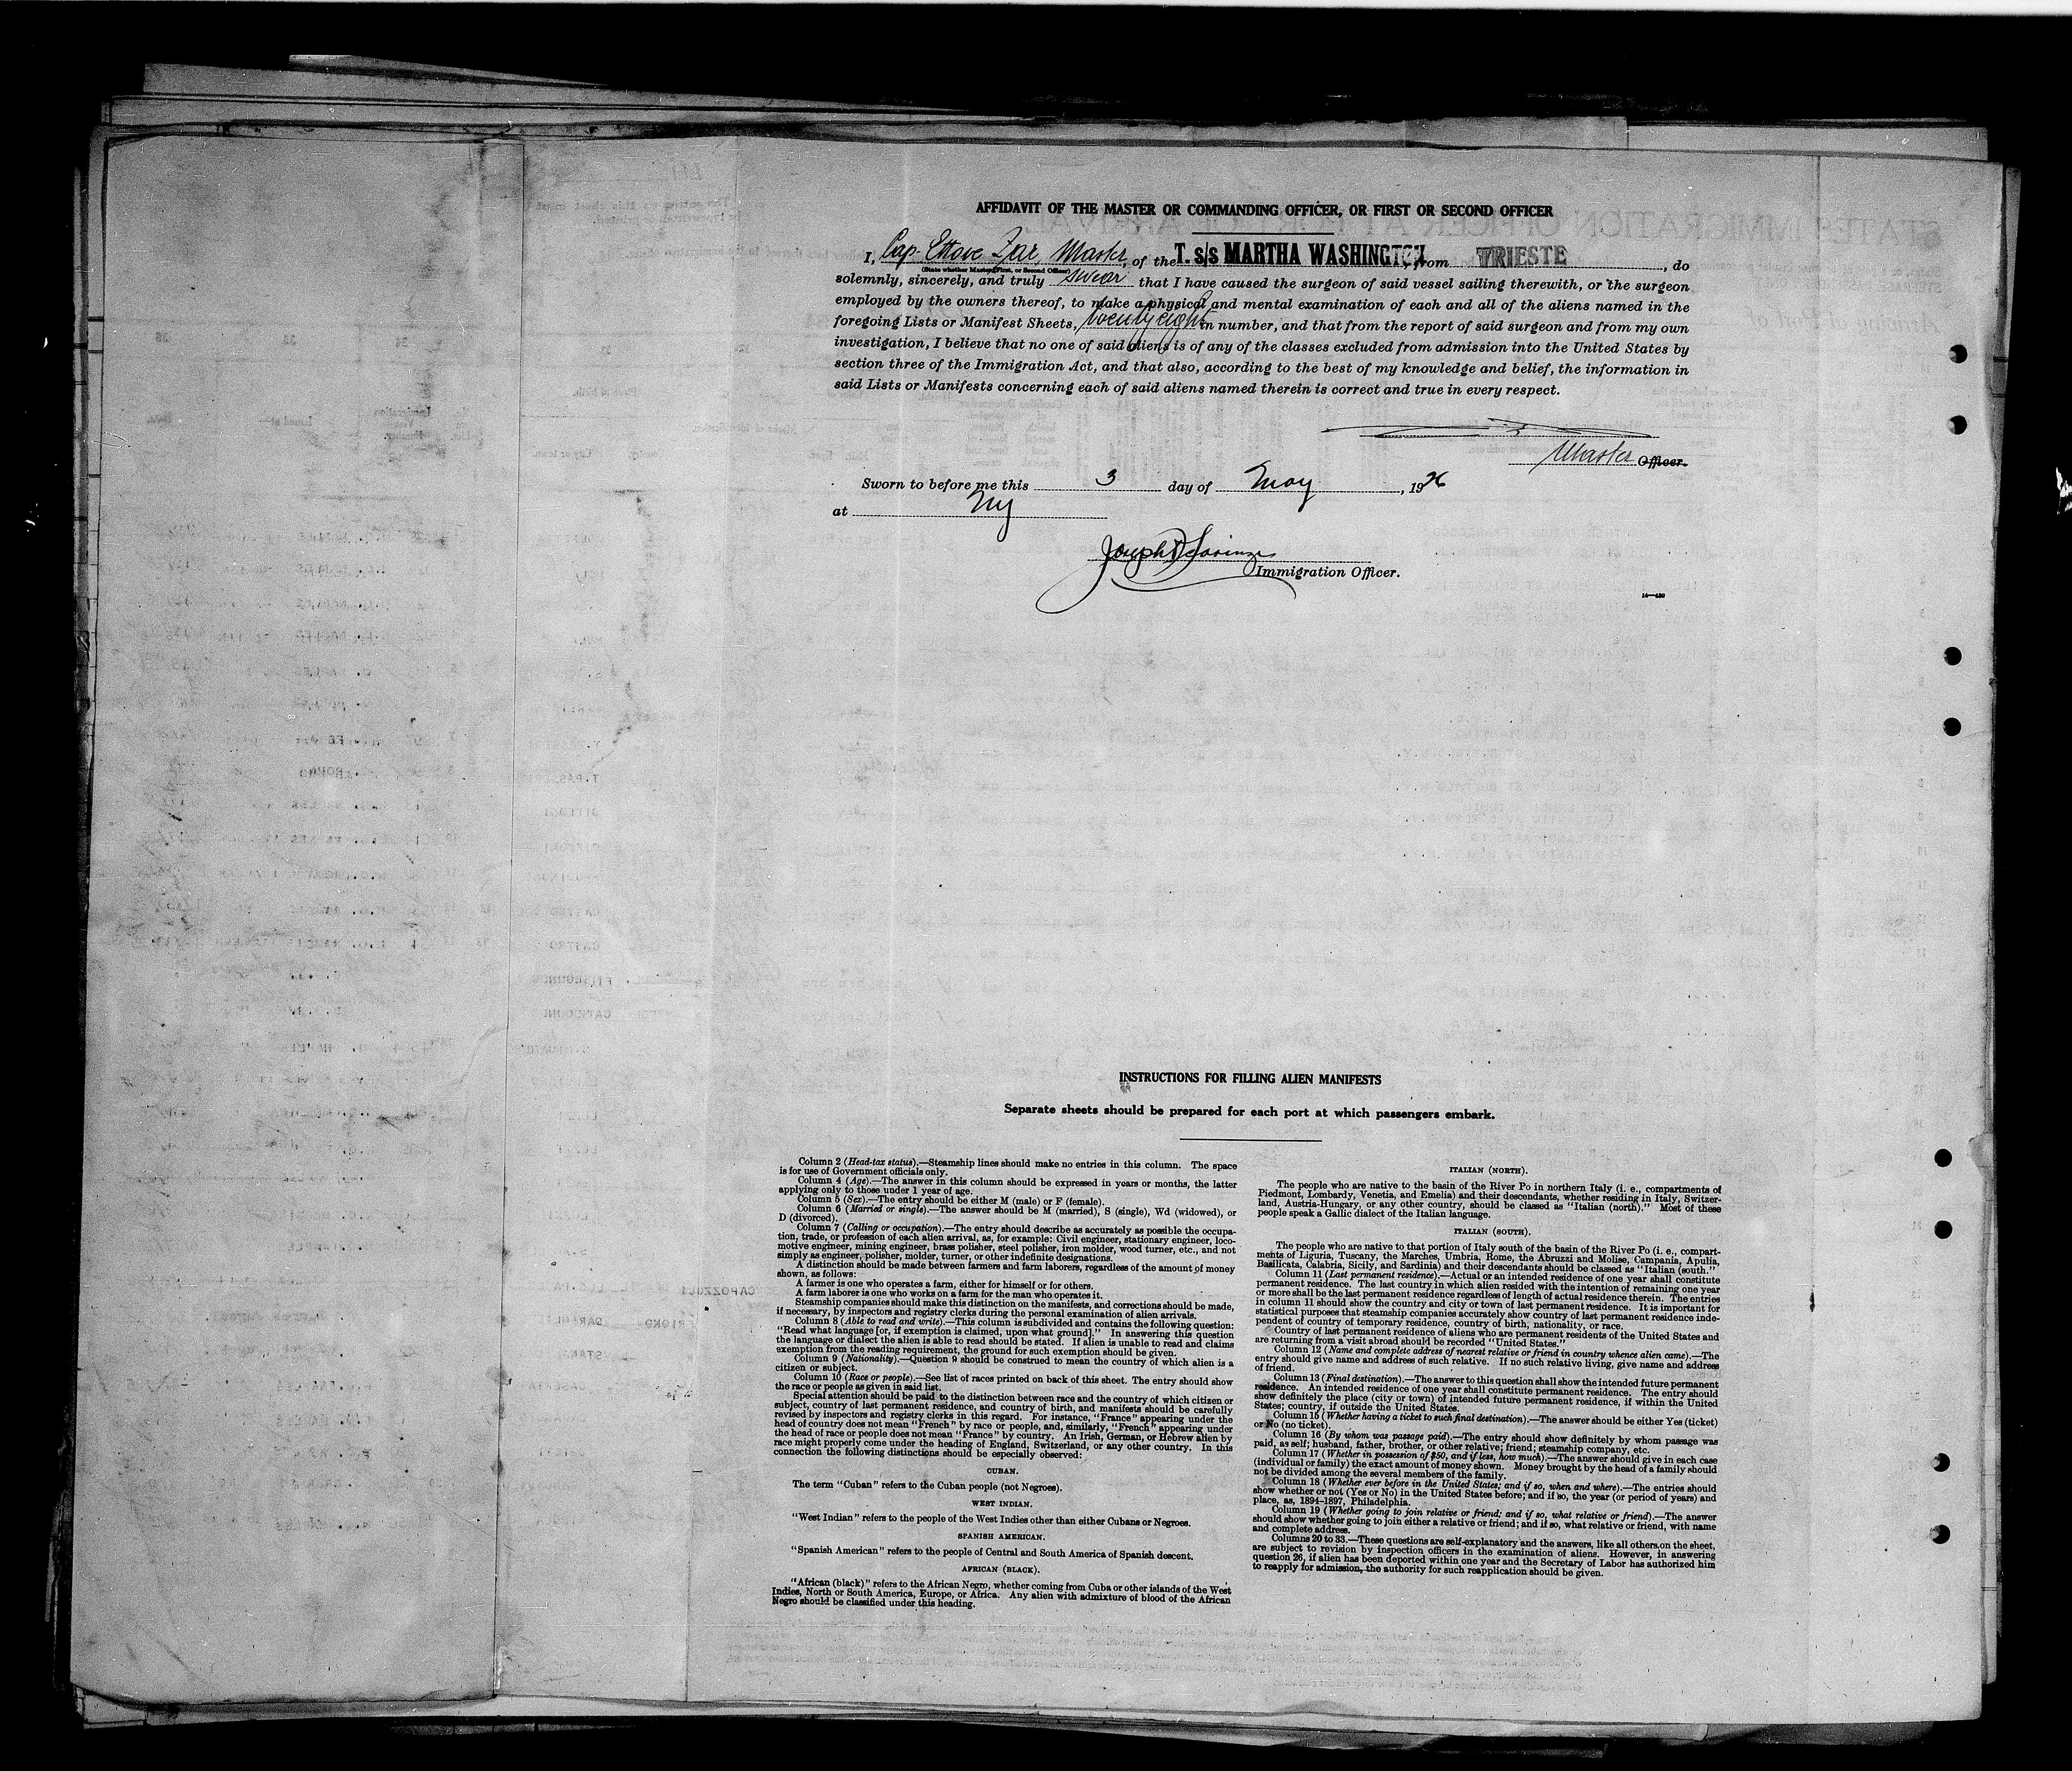 AFFIDAVIT OF THE MASTER OR COMMANDING OFFICER, OR FIRST OR SECOND OFFICER
I, Cap. Ettore Zar, Master, of the T. s/s MARTHA WASHINGTON, from TRIESTE, do
(State whether Master, First, or Second Officer)
solemnly, sincerely, and truly swear that I have caused the surgeon of said vessel sailing therewith, or the surgeon
employed by the owners thereof, to make a physical and mental examination of each and all of the aliens named in the
foregoing Lists or Manifest Sheets, twenty eight in number, and that from the report of said surgeon and from my own
investigation, I believe that no one of said aliens is of any of the classes excluded from admission into the United States by
section three of the Immigration Act, and that also, according to the best of my knowledge and belief, the information in
said Lists or Manifests concerning each of said aliens named therein is correct and true in every respect.
Master Officer.
Sworn to before me this 3 day of May, 192
at NY
Joseph
Immigration Officer.
INSTRUCTIONS FOR FILLING ALIEN MANIFESTS
Separate sheets should be prepared for each port at which passengers embark.
Column 2 (Head-tax status).—Steamship lines should make no entries in this column. The space
is for use of Government officials only.
Column 4 (Age).—The answer in this column should be expressed in years or months, the latter
applying only to those under 1 year of age.
Column 5 (Sex).—The entry should be either M (male) or F (female).
Column 6 (Married or single).—The answer should be M (married), S (single), Wd (widowed), or
D (divorced).
Column 7 (Calling or occupation).—The entry should describe as accurately as possible the occupa-
tion, trade, or profession of each alien arrival, as, for example: Civil engineer, stationary engineer, loco-
motive engineer, mining engineer, brass polisher, steel polisher, iron molder, wood turner, etc., and not
simply as engineer, polisher, molder, turner, or other indefinite designations.
A distinction should be made between farmers and farm laborers, regardless of the amount of money
shown, as follows:
A farmer is one who operates a farm, either for himself or for others.
A farm laborer is one who works on a farm for the man who operates it.
Steamship companies should make this distinction on the manifests, and corrections should be made,
if necessary, by inspectors and registry clerks during the personal examination of alien arrivals.
Column 8 (Able to read and write).—This column is subdivided and contains the following question:
"Read what language [or, if exemption is claimed, upon what ground]." In answering this question
the language or dialect the alien is able to read should be stated. If alien is unable to read and claims
exemption from the reading requirement, the ground for such exemption should be given.
Column 9 (Nationality).—Question 9 should be construed to mean the country of which alien is a
citizen or subject.
Column 10 (Race or people).—See list of races printed on back of this sheet. The entry should show
the race or people as given in said list.
Special attention should be paid to the distinction between race and the country of which citizen or
subject, country of last permanent residence, and country of birth, and manifests should be carefully
revised by inspectors and registry clerks in this regard. For instance, "France" appearing under the
head of country does not mean "French" by race or people, and, similarly, "French" appearing under
the head of race or people does not mean "France" by country. An Irish, German, or Hebrew alien by
race might properly come under the heading of England, Switzerland, or any other country. In this
connection the following distinctions should be especially observed:
CUBAN.
The term "Cuban" refers to the Cuban people (not Negroes).
WEST INDIAN.
"West Indian" refers to the people of the West Indies other than either Cubans or Negroes.
SPANISH AMERICAN.
"Spanish American" refers to the people of Central and South America of Spanish descent.
AFRICAN (BLACK).
"African (black)" refers to the African Negro, whether coming from Cuba or other islands of the West
Indies, North or South America, Europe, or Africa. Any alien with admixture of blood of the African
Negro should be classified under this heading.
ITALIAN (NORTH).
The people who are native to the basin of the River Po in northern Italy (i. e., compartments of
Piedmont, Lombardy, Venetia, and Emelia) and their descendants, whether residing in Italy, Switzer-
land, Austria-Hungary, or any other country, should be classed as "Italian (north)." Most of these
people speak a Gallic dialect of the Italian language.
ITALIAN (SOUTH).
The people who are native to that portion of Italy south of the basin of the River Po (i. e., compart-
ments of Liguria, Tuscany, the Marches, Umbria, Rome, the Abruzzi and Molise, Campania, Apulia,
Basilicata, Calabria, Sicily, and Sardinia) and their descendants should be classed as "Italian (south."
Column 11 (Last permanent residence).—Actual or an intended residence of one year shall constitute
permanent residence. The last country in which alien resided with the intention of remaining one year
or more shall be the last permanent residence regardless of length of actual residence therein. The entries
in column 11 should show the country and city or town of last permanent residence. It is important for
statistical purposes that steamship companies accurately show country of last permanent residence inde-
pendent of country of temporary residence, country of birth, nationality, or race.
Country of last permanent residence of aliens who are permanent residents of the United States and
are returning from a visit abroad should be recorded "United States."
Column 12 (Name and complete address of nearest relative or friend in country whence alien came).—The
entry should give name and address of such relative. If no such relative living, give name and address
of friend.
Column 13 (Final destination).—The answer to this question shall show the intended future permanent
residence. An intended residence of one year shall constitute permanent residence. The entry should
show definitely the place (city or town) of intended future permanent residence, if within the United
States; country, if outside the United States.
Column 15 (Whether having a ticket to such final destination).—The answer should be either Yes (ticket)
or No (no ticket).
Column 16 (By whom was passage paid).—The entry should show definitely by whom passage was
paid, as self; husband, father, brother, or other relative; friend; steamship company, etc.
Column 17 (Whether in possession of $50, and if less, how much).—The answer should give in each case
(individual or family) the exact amount of money shown. Money brought by the head of a family should
not be divided among the several members of the family.
Column 18 (Whether ever before in the United States; and if so, when and where).—The entries should
show whether or not (Yes or No) in the United States before; and if so, the year (or period of years) and
place, as, 1894-1897, Philadelphia.
Column 19 (Whether going to join relative or friend; and if so, what relative or friend).—The answer
should show whether going to join either a relative or friend; and if so, what relative or friend, with name
and complete address.
Columns 20 to 33.—These questions are self-explanatory and the answers, like all others on the sheet,
are subject to revision by inspection officers in the examination of aliens. However, in answering
question 26, if alien has been deported within one year and the Secretary of Labor has authorized him
to reapply for admission, the authority for such reapplication should be given.